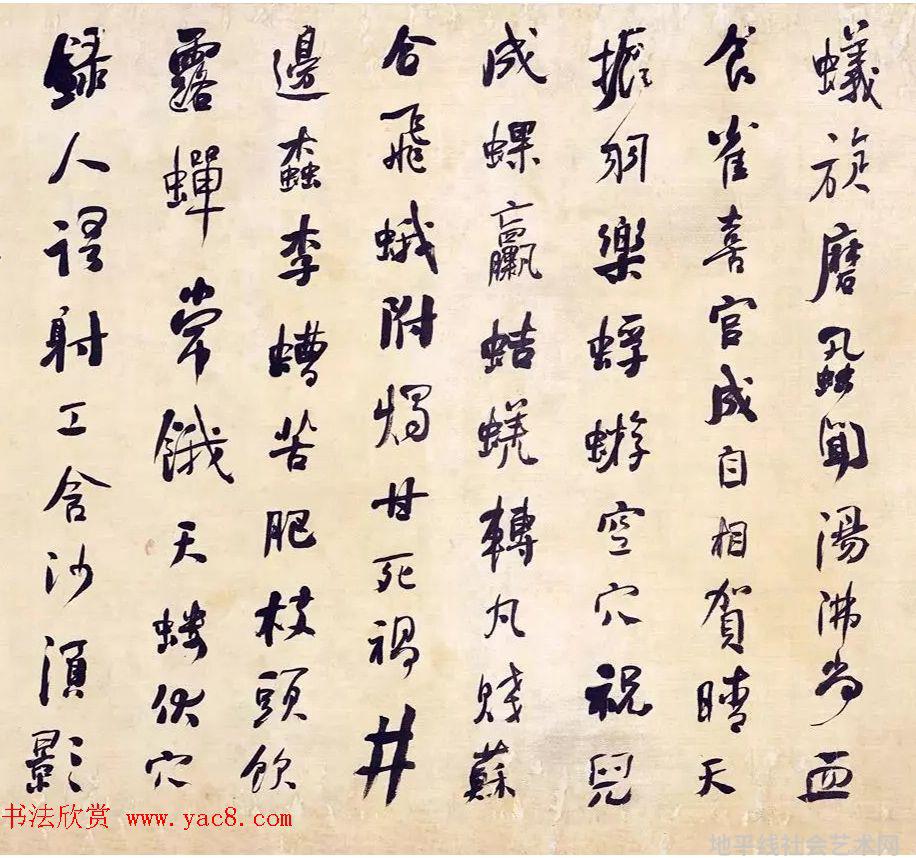 蟻旋磨蝨聞湯沸尚血
食雀喜官成自相賀晴天
振羽樂蜉蝣空穴祝兒
成蜾蠃蛣蜣轉丸賤蘇
合飛蛾附燭甘死禍井
邊蠹李螬苦肥枝頭飲
露蟬常餓天螻伏穴
錄人語射工含沙須影
书法欣赏 www.yac8.com
地平线社会艺术网